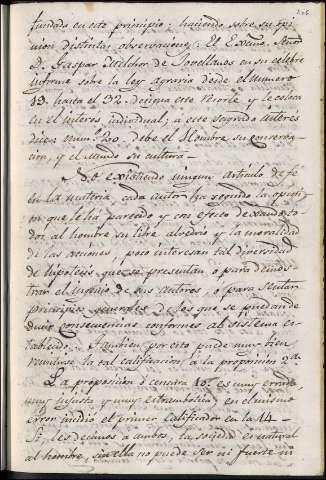 fundada en este principio; haciendo sobre su opi
nion distintas observaciones. El Exmo. Señor
D. Gaspar Melchor de Jovellanos en su celebre
informe sobre la ley agraria desde el numero
19. hasta el 32. designa este resorte y le coloca
en el interes individual; a este sagrado interes
dice numº 20. debe el Hombre su conserva-
cion, y el mundo su cultura.
No existiendo ningun articulo de fe
en la materia, cada autor ha seguido la opini
on que le há parecido y con efecto dexando to
dos al hombre su libre alvedrio y la moralidad
de las acciones, poco interesan tal diversidad
de hipotesis que se presentan, o para demos
trar el ingenio de sus autores, o para sentar
principios generales de los que se puedan de
ducir consecuencias conformes al sistema es-
tablecido. Tambien por esto puede muy bien
remitirse la tal calificacion à la proposicion 2ª
La proposicion ò censura 10. es muy errada
muy injusta y muy extrambotica; en el mismo
error incidió el primer calificador en la 14-
Si, les decimos a ambos, la sociedad es natural
al hombre, sin ella no puede ser ni fuerte ni